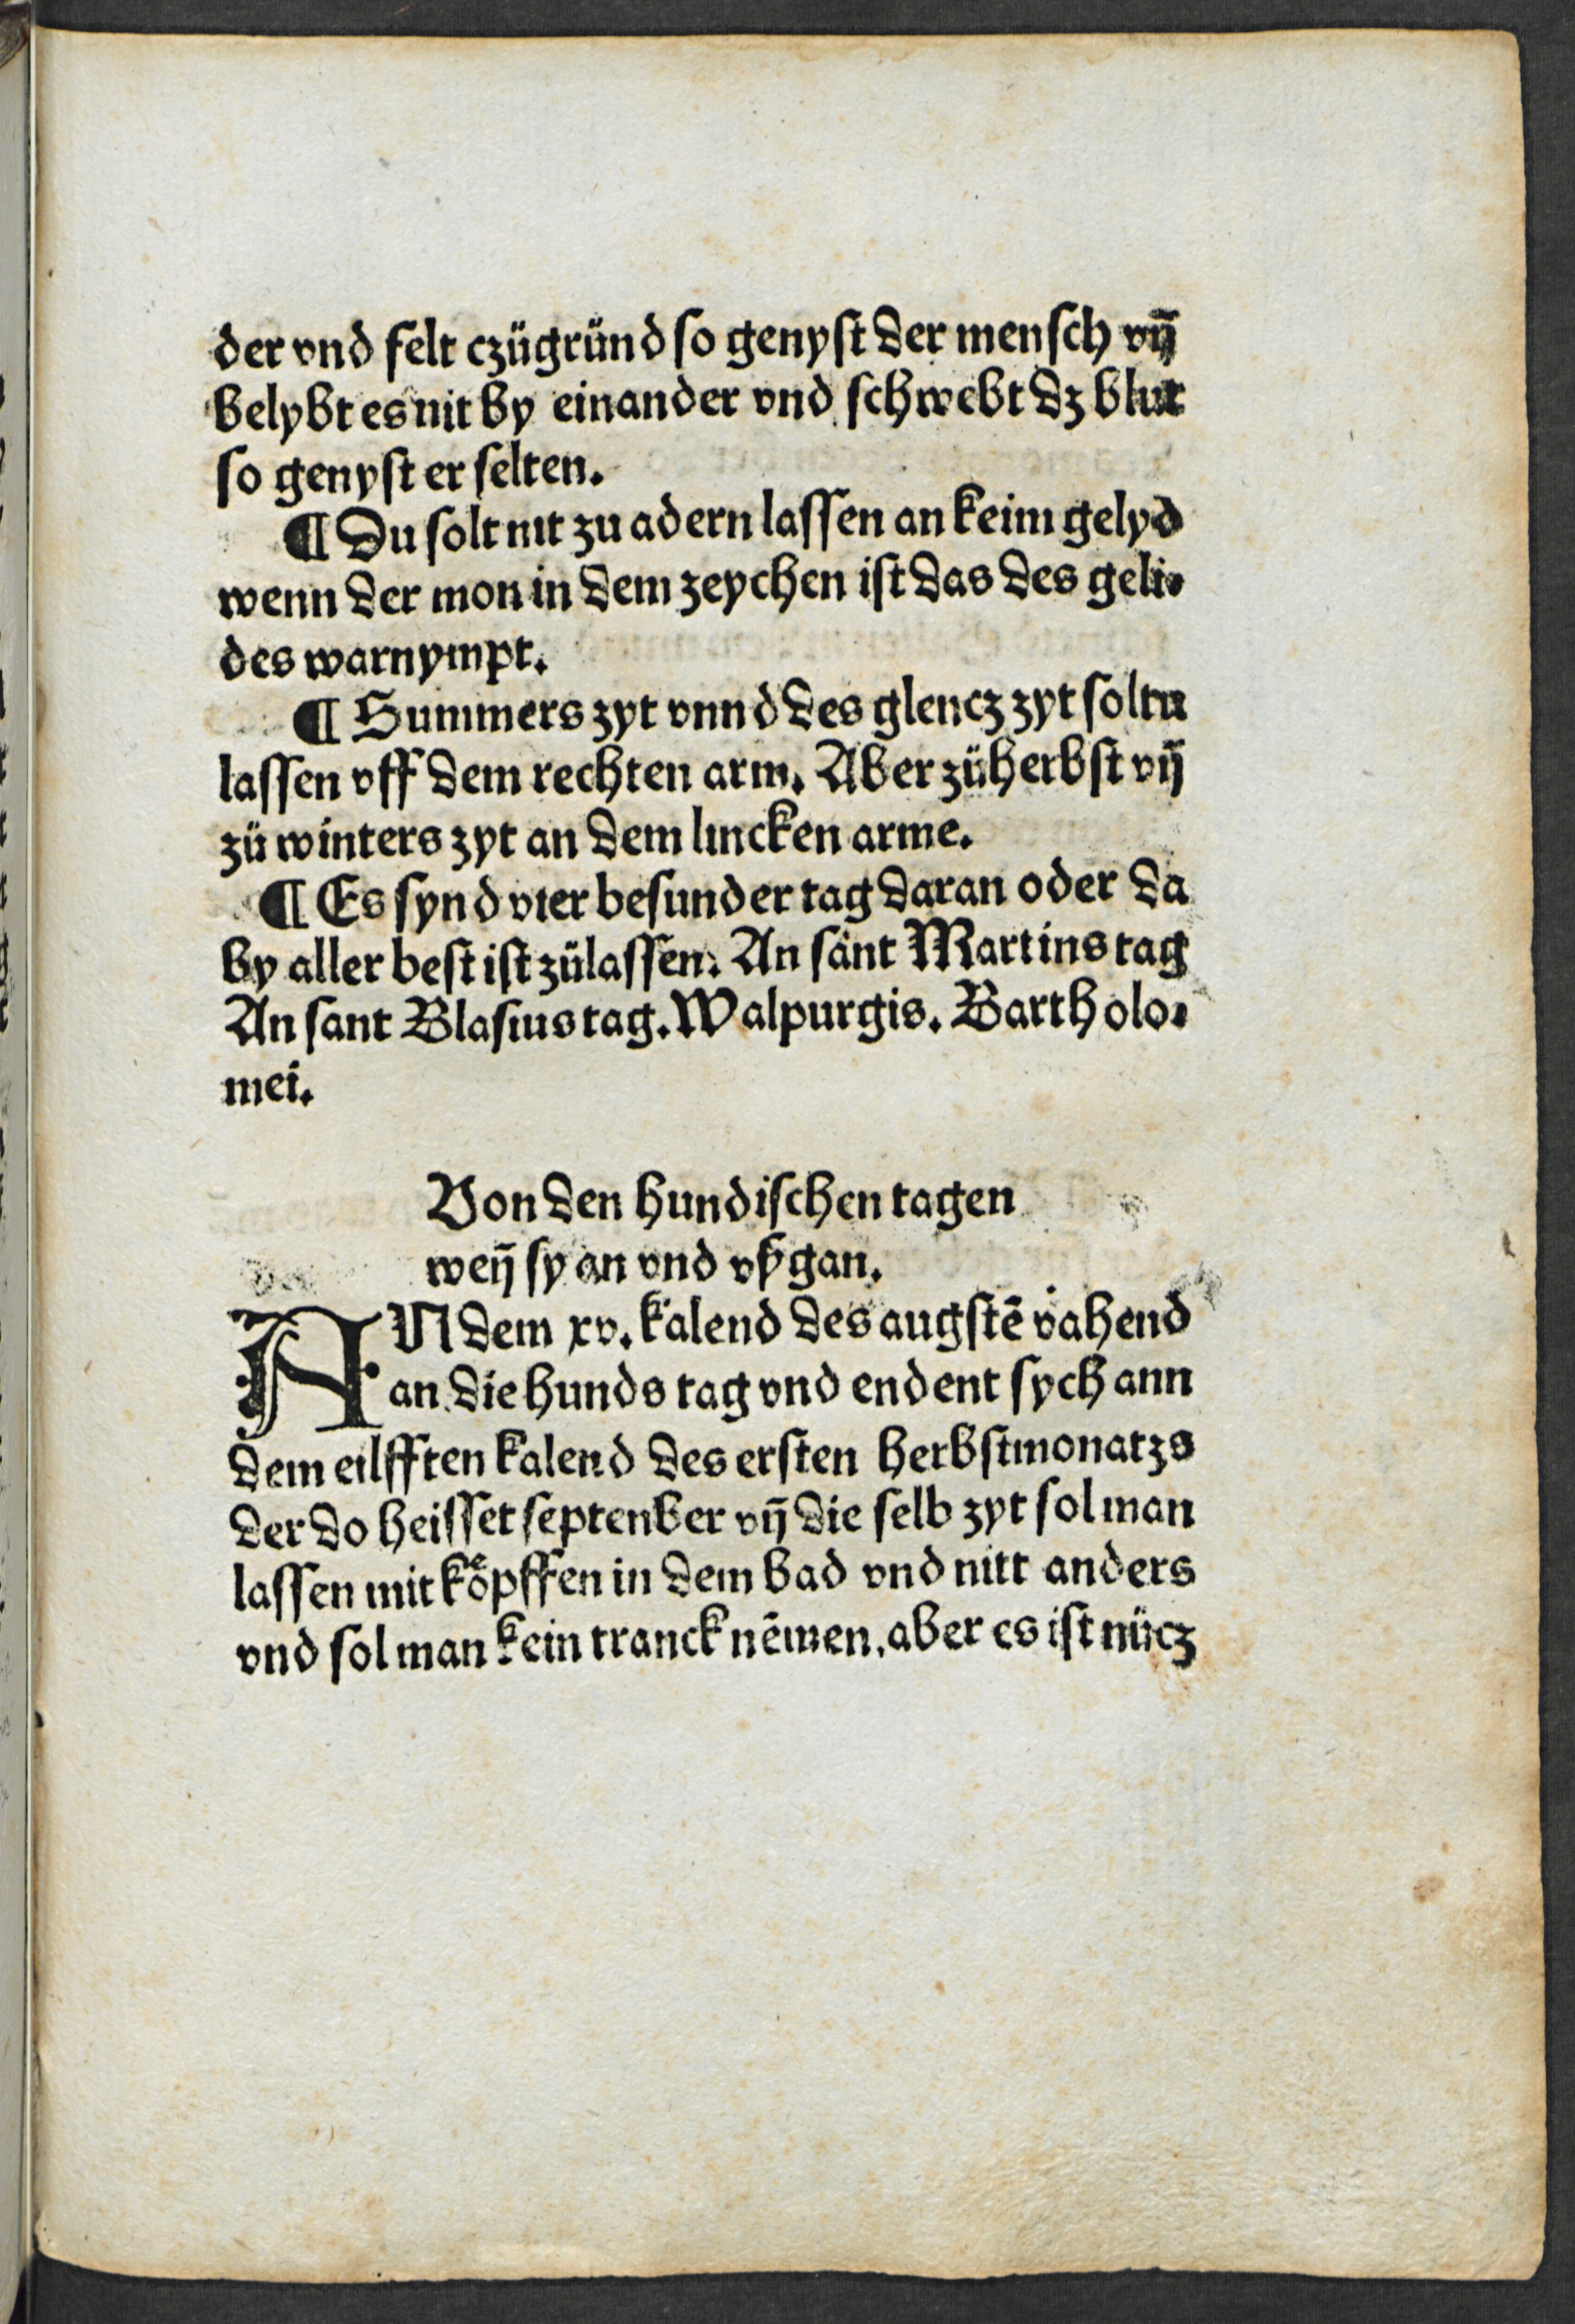 der vnd felt czügründ so genyst der mensch vn̄
belybt es nit by einander vnd schwebt dz blut
so genyst er selten.
¶ Du solt nit zu adern lassen an keim gelyd
wenn der mon in dem zeychen ist das des geli⸗
des warnympt.
¶ Summers zyt vnnd des glencz zyt soltu
lassen vff dem rechten arm. Aber zü herbst vn̄
zü winters zyt an dem lincken arme.
¶ Es synd vier besunder tag daran oder da
by aller best ist zülassen. An sant Martins tag
An sant Blasius tag. Walpurgis. Bartholo⸗
mei.
Von den hundischen tagen
wen̄ sy an vnd vßgan.
AN dem xv. kalend des augstē vahend
an die hunds tag vnd endent sych ann
dem eilfften kalend des ersten herbstmonatzs
der do heisset septenber vn̄ die selb zyt sol man
lassen mit koͤpffen in dem bad vnd nitt anders
vnd sol man kein tranck nēmen. aber es ist nücz